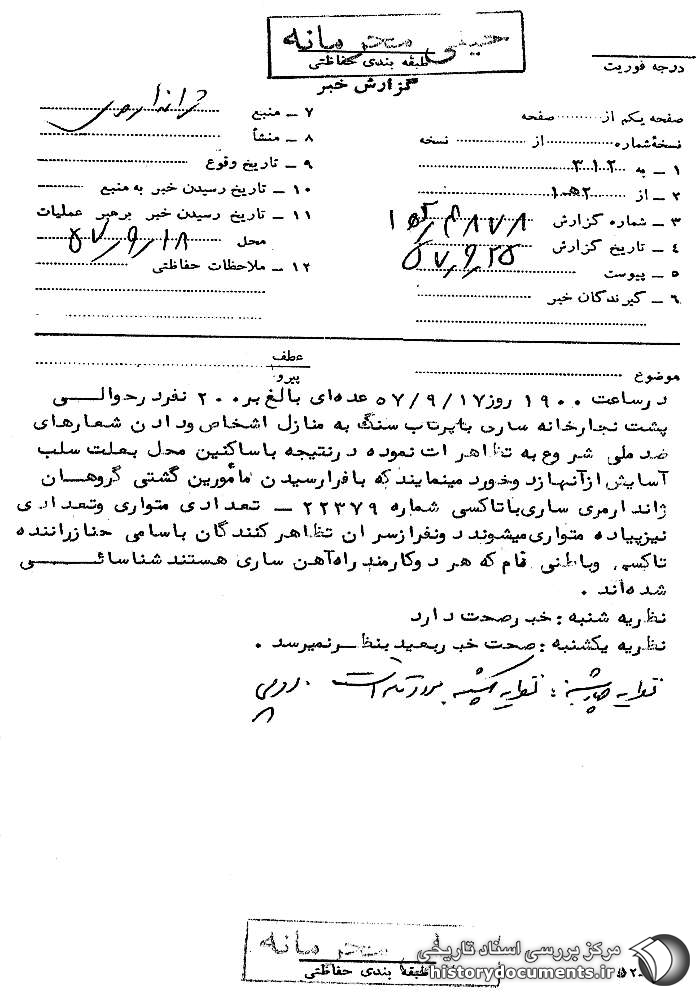 خیلی محرمانه
طبقه بندی حفاظتی
گزارش خبر
درجه فوریت
صفحه یکم از ........ صفحه
نسخهٔ شماره ........ از ........ نسخه
۱ ــ به ۳۱۲
۲ ــ از ۱ه۲
۳ ــ شماره گزارش
۴ ــ تاریخ گزارش ۵۷٫۹٫۲۵
۵ ــ پیوست
۶ ــ گیرندگان خبر
۷ ــ منبع ژاندارمری
۸ ــ منشأ
۹ ــ تاریخ وقوع
۱۰ ــ تاریخ رسیدن خبر به منبع
۱۱ ــ تاریخ رسیدن خبر برهبر عملیات
محل ۵۷٫۹٫۱۸
۱۲ ــ ملاحظات حفاظتی
موضوع
عطف
پیرو
درساعت ۱۹۰۰ روز ۵۷/۹/۱۷ عده‌ای بالغ بر ۲۰۰ نفر درحوالی
پشت نجارخانه ساری باپرتاب سنگ به منازل اشخاص ودادن شعارهای
ضد ملی شروع به تظاهرات نموده درنتیجه باساکنین محل بعلت سلب
آسایش ازآنها زدوخورد مینمایند که بافرارسیدن مأمورین گشتی گروهان
ژاندارمری ساری باتاکسی شماره ۲۲۳۷۹ ــ تعدادی متواری وتعدادی
نیزپیاده متواری میشوند دونفرازسران تظاهرکنندگان باسامی حنازراننده
تاکسی وباطنی قام که هردوکارمند راه‌آهن ساری هستند شناسائی
شده‌اند .
نظریه شنبه : خبرصحت دارد
نظریه یکشنبه : صحت خبربعید بنظرنمیرسد .
نظریه چهارشنبه : نظریه یکشنبه مورد تائید است .
خیلی محرمانه
طبقه بندی حفاظتی
مرکز بررسی اسناد تاریخی
historydocuments.ir